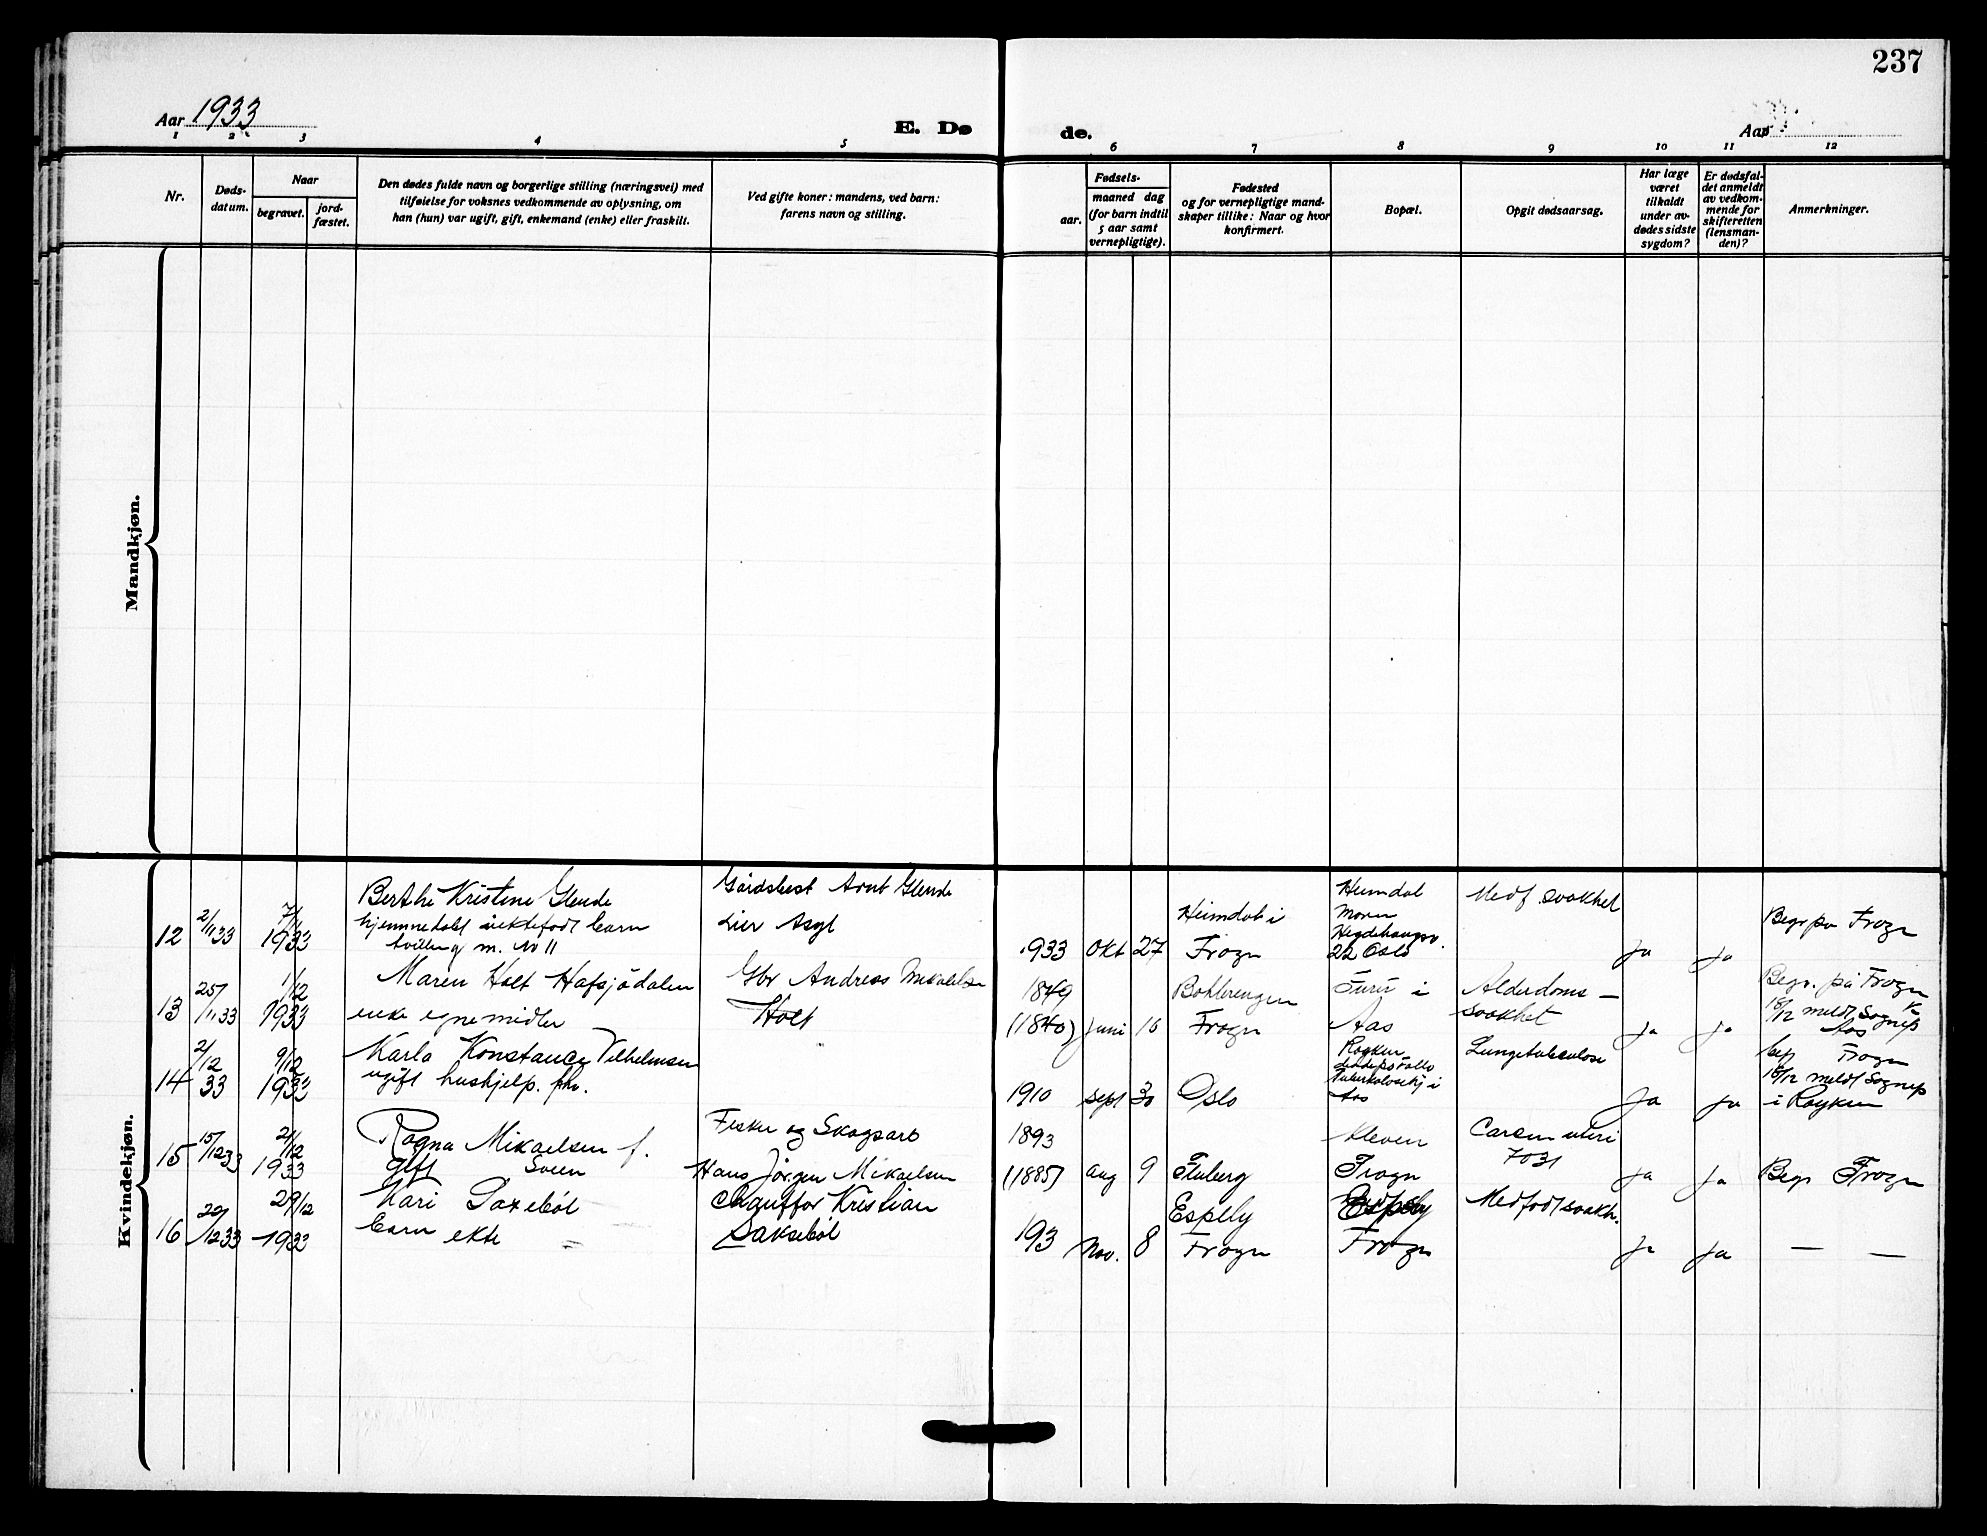 237
Aar 1933
E. Dø
de.
Aar
1 2 3 4 5 6 7 8 9 10 11 12
Nr.
Døds-
datum.
Naar
begravet.
jord-
fæstet.
Den dødes fulde navn og borgerlige stilling (næringsvei) med
tilføielse for voksnes vedkommende av oplysning, om
han (hun) var ugift, gift, enkemand (enke) eller fraskilt.
Ved gifte koner: mandens, ved barn:
farens navn og stilling.
Fødsels-
aar.
maaned dag
(for barn indtil
5 aar samt
vernepligtige).
Fødested
og for vernepligtige mand-
skaper tillike: Naar og hvor
konfirmert.
Bopæl.
Opgit dødsaarsag.
Har læge
været
tilkaldt
under av-
dødes sidste
sygdom?
Er dødsfal-
det anmeldt
av vedkom-
mende for
skifteretten
(lensman-
den)?
Anmerkninger.
Mandkjøn.
Kvindekjøn.
12
2/11 33
7/11
1933
Berthe Kristine Glende
hjemmedøbt barn
tvilling m. Nr 11
Arnt Glende
Lier Asyl
1933 Okt 27
Heimdal i
Frogn
Heimdal
22 Oslo
Medf svakhet
Ja
Ja
Begr på Frogn
13
25/11 33
1/12
1933
Maren Holt Hafsjødalen
enke egne midler
Gbr Andreas
Holt
1849
(1840) Juni 16
Frogn
Furu i
Aas
Alderdoms-
svakhet
Ja
Ja
Begr. på Frogn
18/12 meldt Sognep
Aas
14
2/12
33
9/12
1933
Karla Konstance Vilhelmsen
ugift hushjelp.
1910 sept 30
Oslo
Røyken
i
Aas
Lungetuberkulose
Ja
Ja
beg Frogn
18/12 meldt Sognep
i Røyken
15
15/12 33
21/12
1933
Ragna Mikaelsen f.
gift Sveen
Fisker og Skogsarb
Hans Jørgen Mikaelsen
1893
(1885) Aug 9
Fluberg
Kleven
Frogn
uteri
7031
Ja
Ja
Begr Frogn
16
22/12 33
29/12
1933
Kari Saxebøl
barn ekte
Chauffør Kristian
Saksebøl
193 Nov. 8
Espely
Frogn
Espely
Frogn
Medfødt svakh.
Ja
Ja
— —